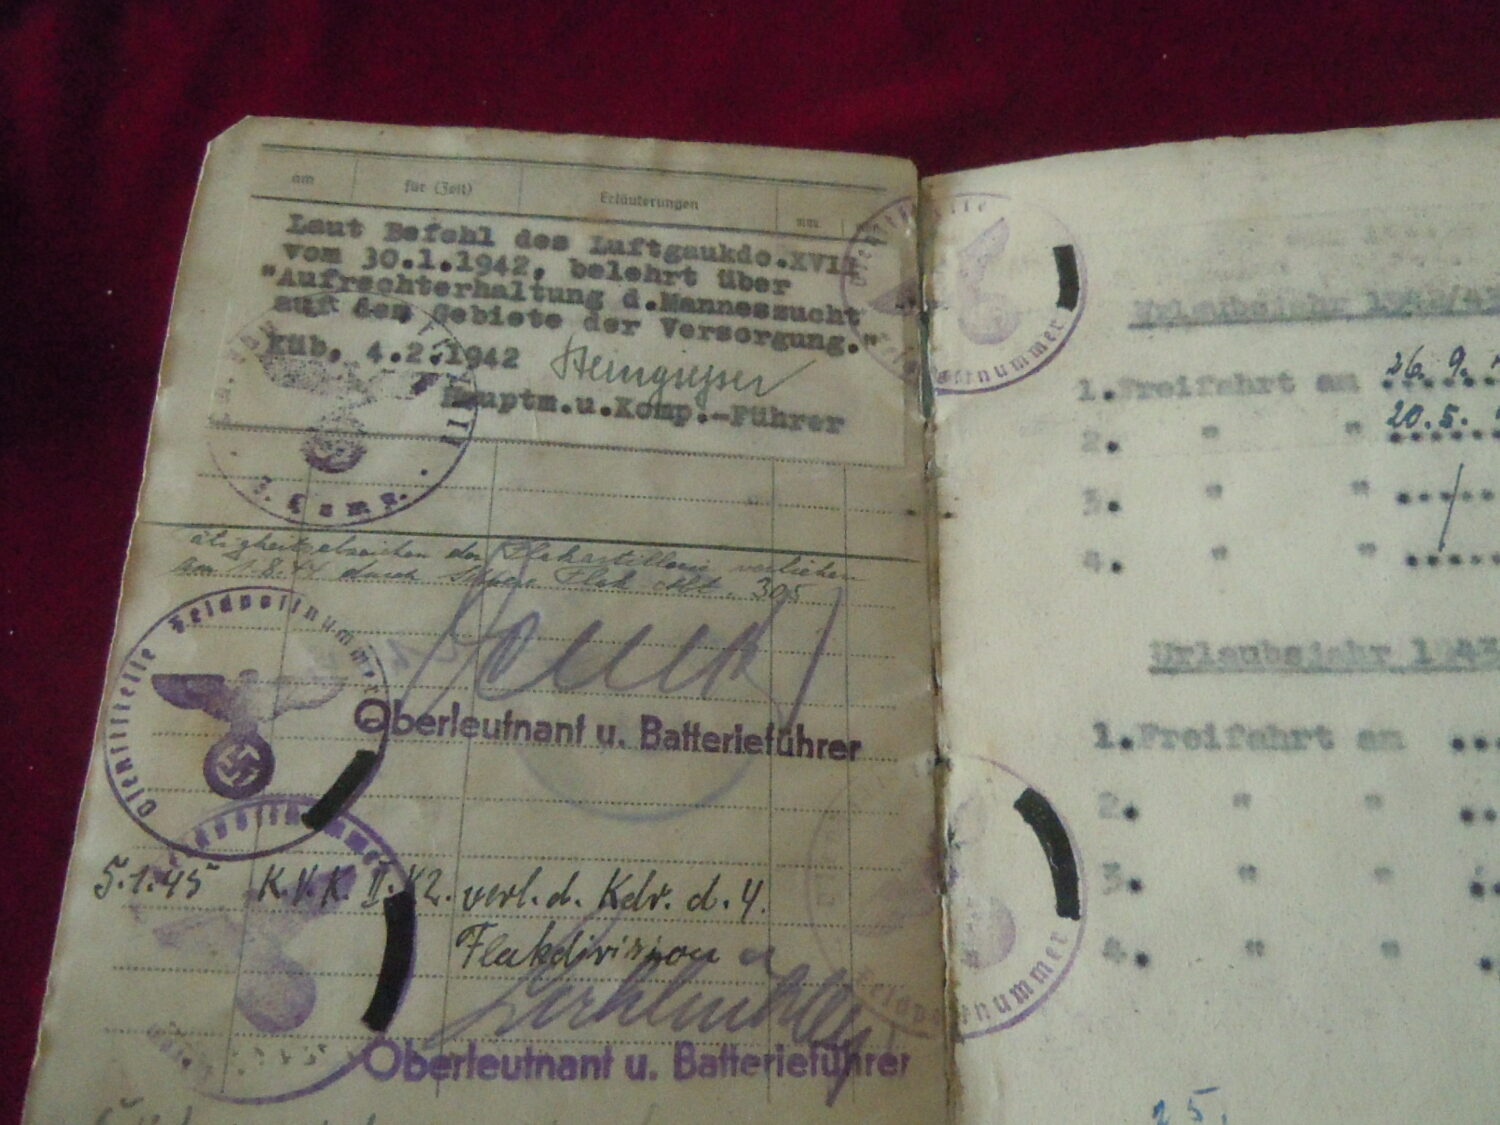 am für (Zeit) Erläuterungen am
Laut Befehl des Luftgaukdo.XVII
vom 30.1.1942, belehrt über
"Aufrechterhaltung d.Manneszucht
auf dem Gebiete der Versorgung."
Küb, 4.2.1942
Hauptm.u.Komp.-Führer
3. Komp.
der Flakartillerie verliehen
am 1.8.44 durch schwere Flak Abt. 305
Dienststelle Feldpostnummer
Oberleutnant u. Batterieführer
Feldpostnummer
5.1.45 K.V.K. II. 42. verl. d. Kdr. d. 4.
Flakdivision
Oberleutnant u. Batterieführer
Feldpostnummer
Urlaubsjahr 1942/43
1.Freifahrt am 26.9.
2. " " 20.5.
3. " "
4. " "
Urlaubsjahr 1943
1.Freifahrt am
2. " "
3. " "
4. " "
Feldpostnummer
25.